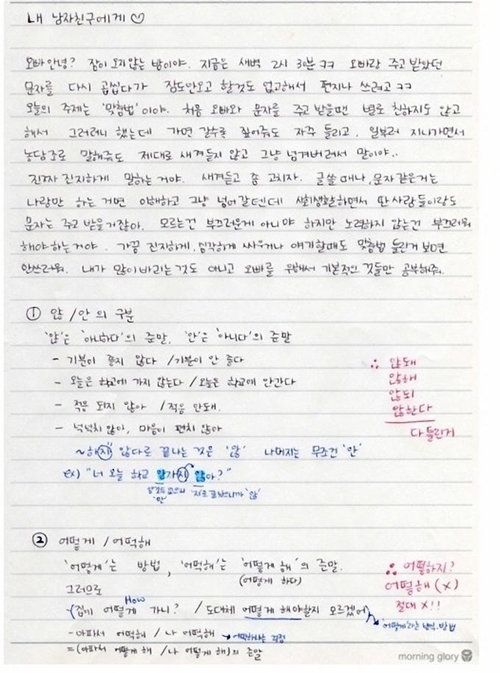 내 남자친구에게 ♡
오빠 안녕? 잠이 오지 않는 밤이야. 지금은 새벽 2시 30분 ㅋㅋ 오빠랑 주고 받았던
문자를 다시 곱씹다가 잠도 안오고 할것도 없고해서 편지나 쓰려고 ㅋㅋ
오늘의 주제는 '맞춤법' 이야. 처음 오빠와 문자를 주고 받을땐 별로 친하지도 않고
해서 그러려니 했는데 가면 갈수록 짚어줘도 자주 틀리고, 일부러 지나가면서
농담조로 말해줘도 제대로 새겨듣지 않고 그냥 넘겨버려서 말이야..
진짜 진지하게 말하는 거야. 새겨듣고 좀 고치자. 글쓸 때나, 문자 같은거는
나랑만 하는 거면 이해하고 그냥 넘어갈텐데 사회생활하면서 딴 사람들이랑도
문자는 주고 받을거잖아. 모르는건 부끄러운게 아니야 하지만 노력하지 않는건 부끄러워
해야하는거야. 가끔 진지하게, 심각하게 싸우거나 얘기할때도 맞춤법 틀린거 보면
안쓰러워. 내가 많이 바라는 것도 아니고 오빠를 위해서 기본적인 것들만 공부해줘.
① 않 / 안의 구분
'않'은 '아니하다'의 준말, '안'은 '아니다'의 준말
- 기분이 좋지 않다 / 기분이 안 좋다
- 오늘은 학교에 가지 않는다 / 오늘은 학교에 안간다
- 적응 되지 않아 / 적응 안돼.
- 넉넉치 않아, 마음이 편치 않아
∴ 않돼
않해
않되
않한다
다 틀린거
~하지 않다로 끝나는 것은 '않' 나머지는 무조건 '안'
ex) "너 오늘 학교 안가지 않아?"
'안' '지'로 끝났으니까 '않'
② 어떻게 / 어떡해
'어떻게'는 방법, '어떡해'는 '어떻게 해'의 준말.
(어떻게 하다)
그러므로
How
(집에 어떻게 가니? / 도대체 어떻게 해야할지 모르겠어)
- 아파서 어떡해 / 나 어떡해
= (아파서 어떻게 해 / 나 어떻게 해)의 준말
∴ 어떻하지?
어떻해 (X)
절대 X!!
morning glory